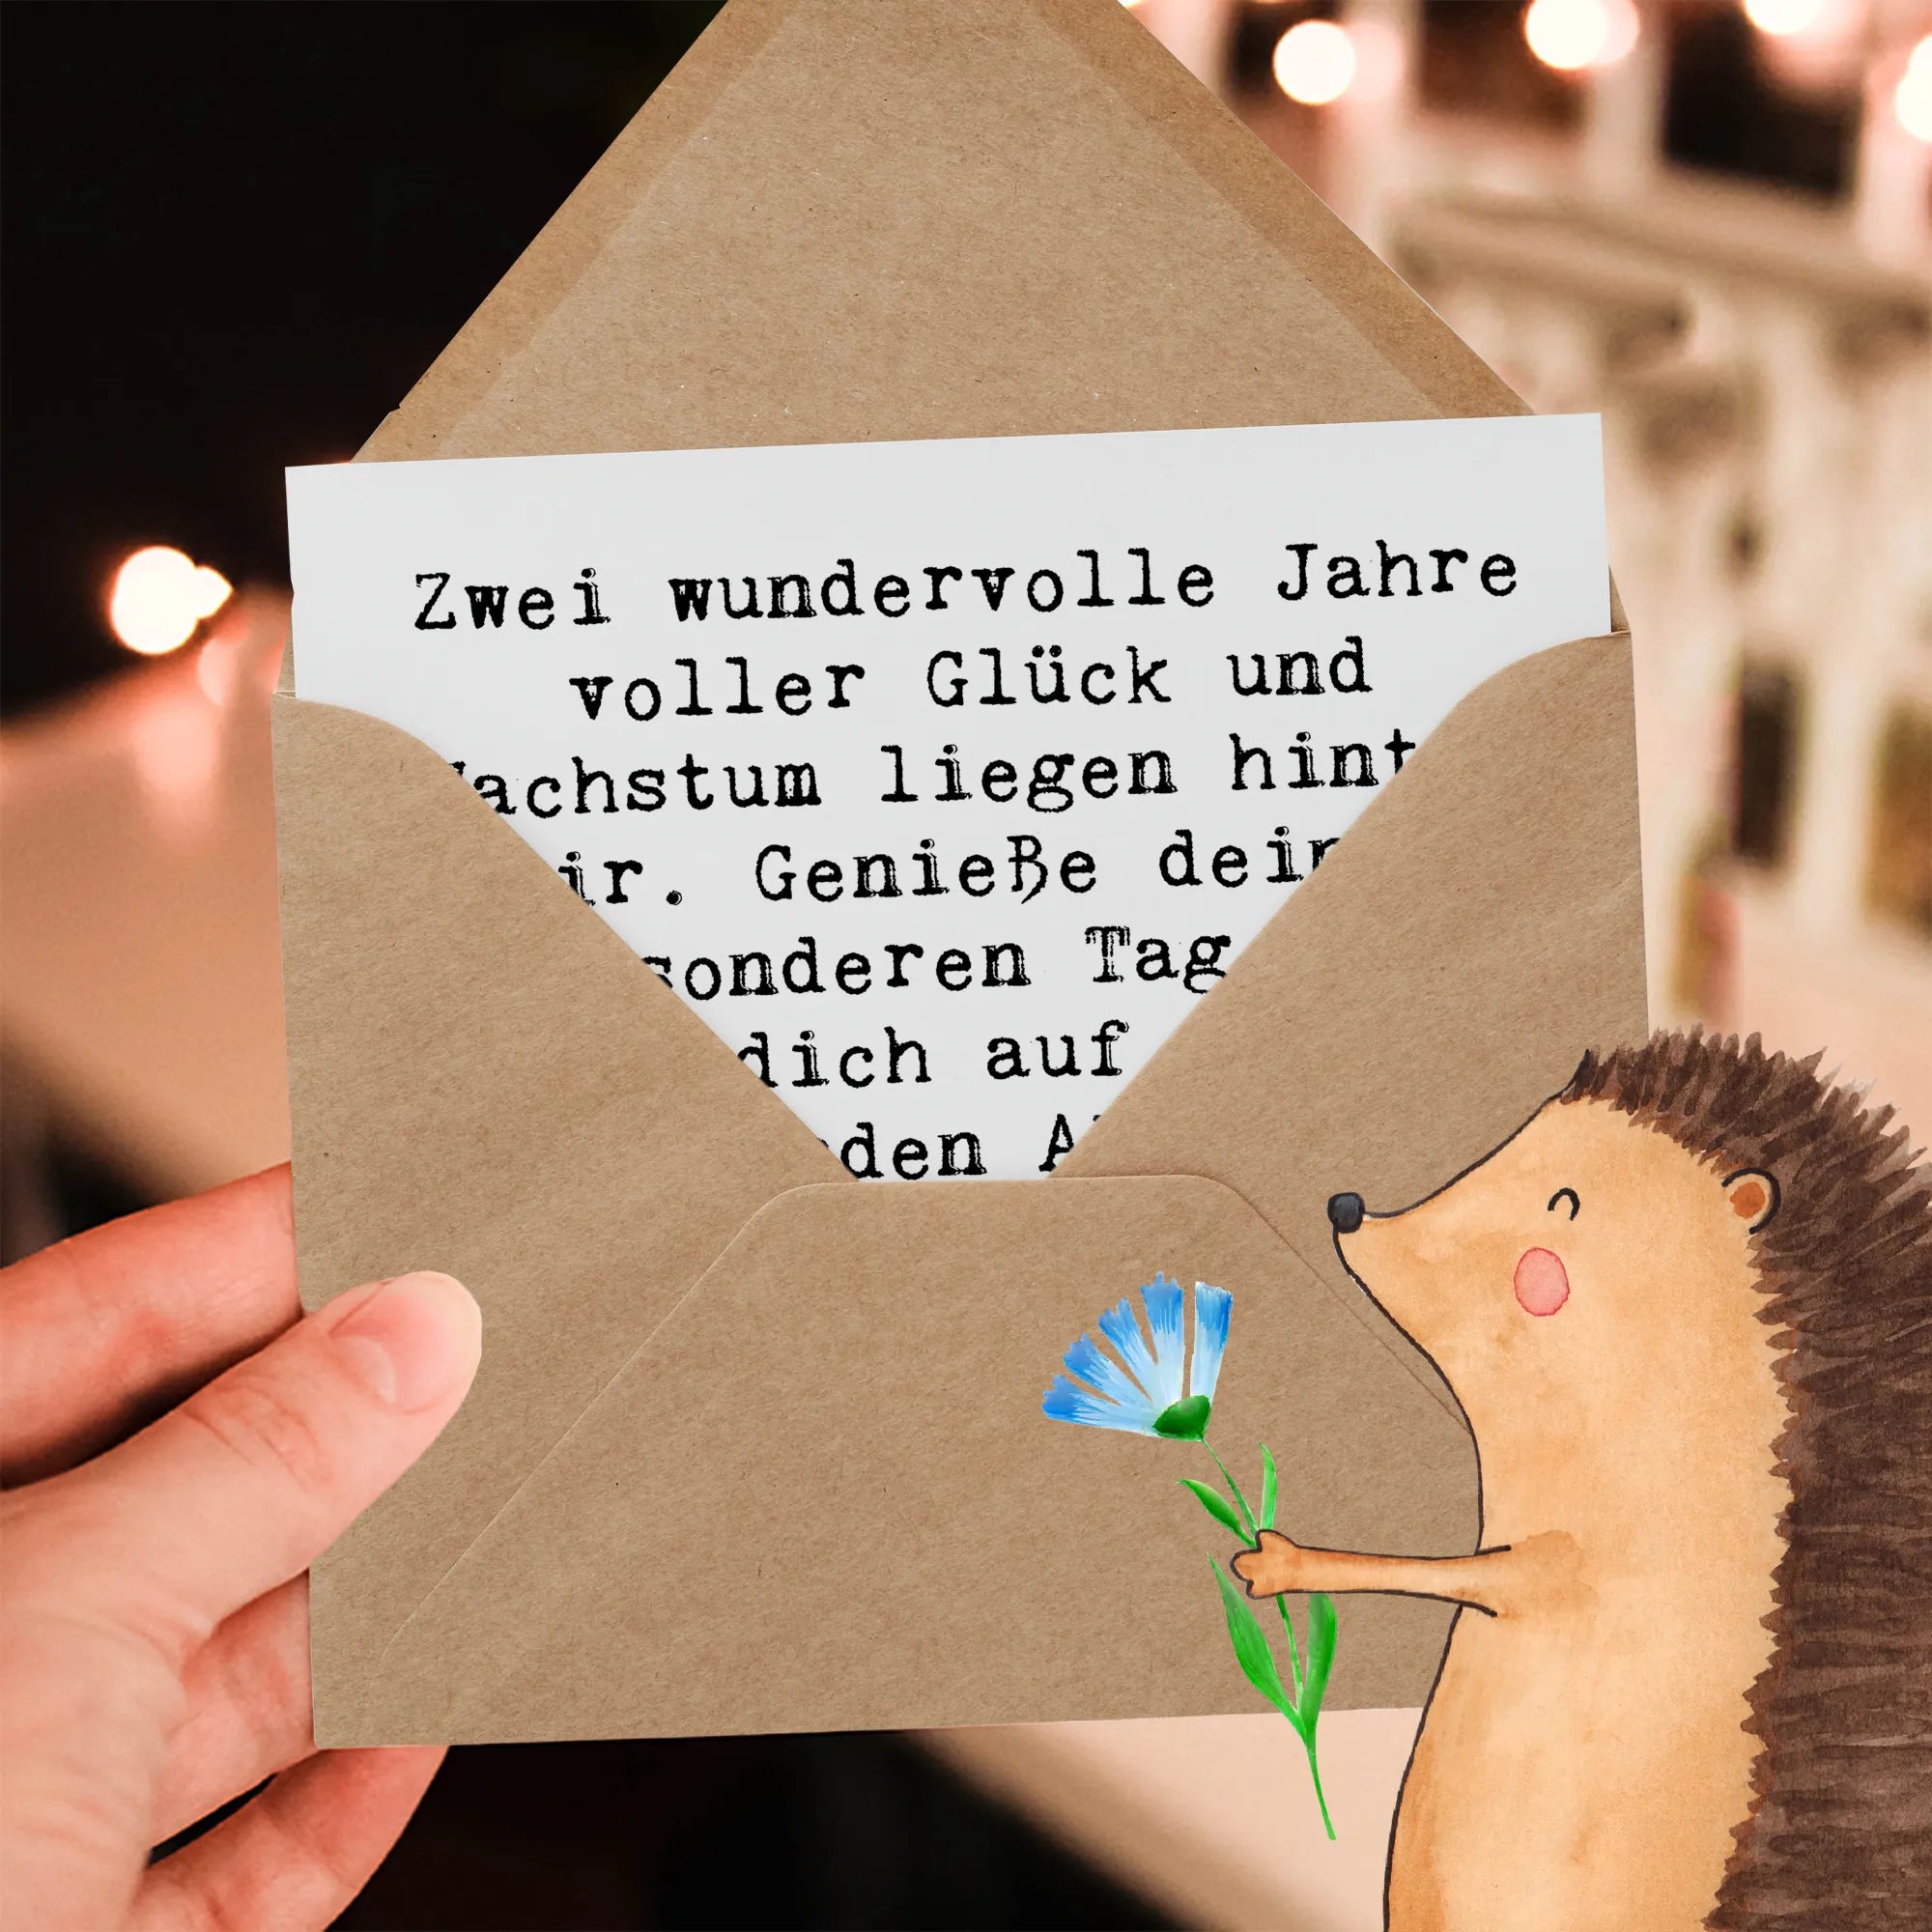 Zwei wundervolle Jahre
voller Glück und
achstum liegen hint
ir. Genieße dein
sonderen Tag
dich auf
den